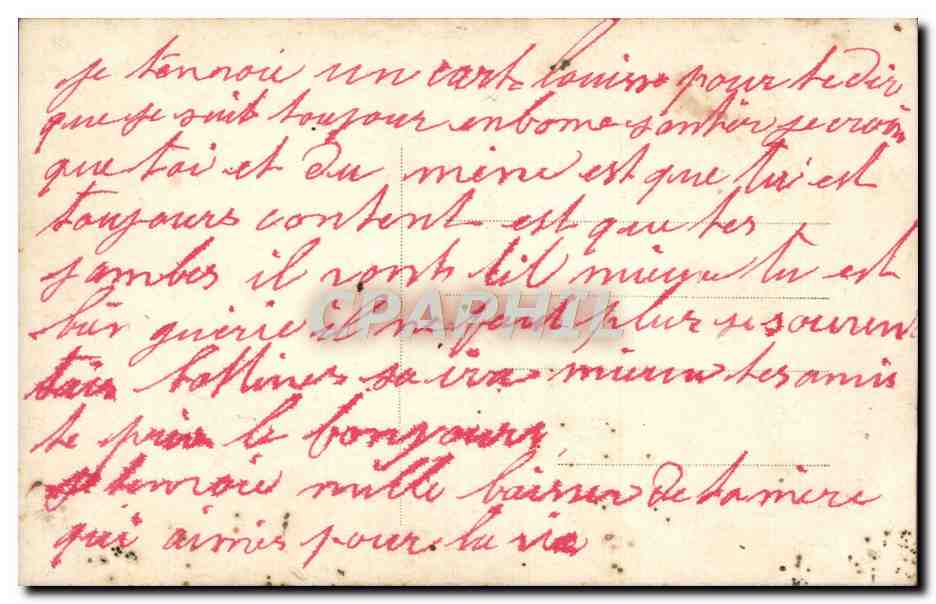 je tenvoie un cart louisse pour te dir
que je suit toujour en bonne santer je croi
que toi et du mène est que tu est
toujours content est que tes
jambes il vont til mieux tu est
bien guerie il ne faut plus se souvent
tes bottines sa ira mieux tes amis
te prie le bonjours
je tenvoie mille baisser de ta mère
qui aimes pour la vie
CPAPHIL